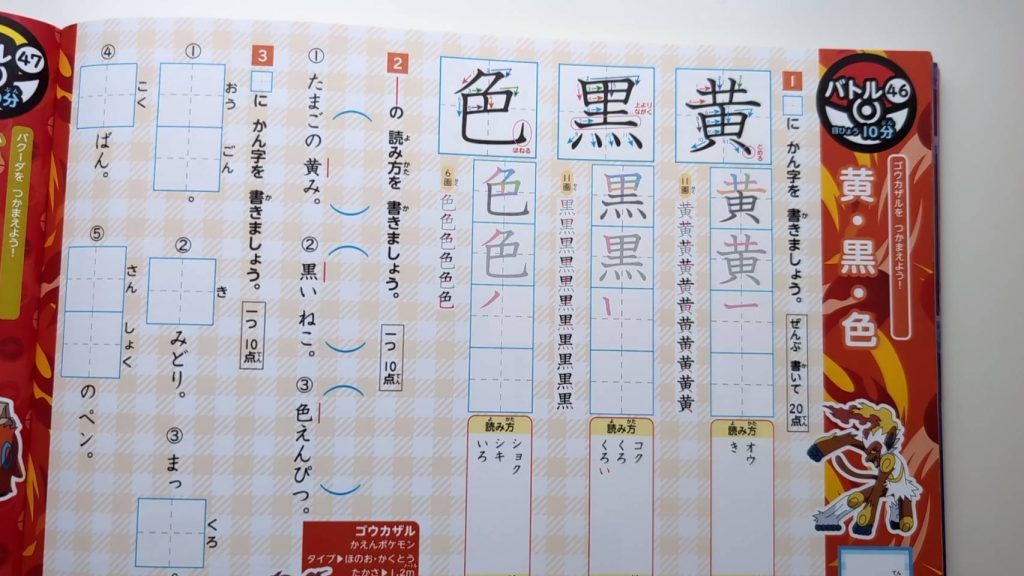 バトル46
目ひょう10分
ゴウカザルを つかまえよう!
黄・黒・色
1 □に かん字を 書きましょう。
ぜんぶ 書いて 20点
黄
とめる
黄黄
11画
黄黄黄黄黄黄黄黄黄黄黄
読み方
オウ
き
黒
上より ながく
黒黒
11画
黒黒黒黒黒黒黒黒黒黒黒
読み方
コク
くろ
くろい
色
はねる
色色
6画
色色色色色色
読み方
ショク
シキ
いろ
2 ―の 読み方を 書きましょう。
一つ 10点
① たまごの 黄み。
② 黒い ねこ。
③ 色えんぴつ。
3 □に かん字を 書きましょう。
一つ 10点
① おう ごん 。
② き みどり。
③ まっ くろ 。
④ こく ばん。
⑤ さん しょく のペン。
ゴウカザル
かえんポケモン
タイプ▶ほのお・かくとう
たかさ▶1.2m
47
10分
バクーダを つかまえよう!